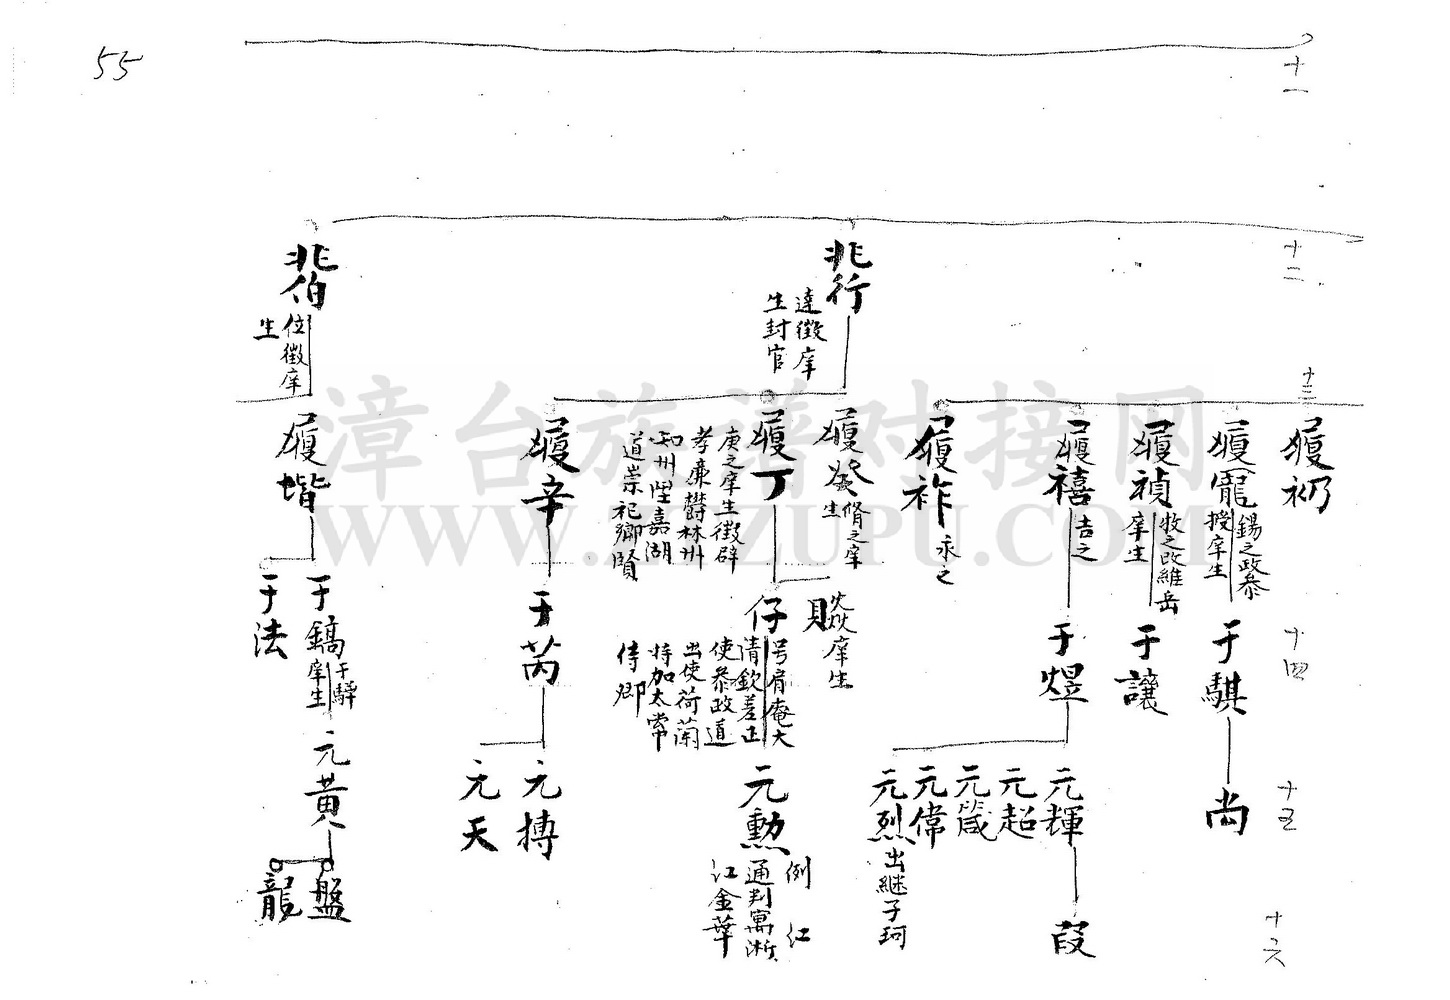 55
十一
十二
兆行
達徵庠
生封官
兆伯
位徵庠
生
十三
履礽
履寵
錫之改泰
授庠生
履禎
牧之改維岳
庠生
履禧
吉之
履祚
永之
履癸
脩之庠
生
履丁
庚之庠生徵辟
孝廉欝林州
知州陞嘉湖
道崇祀鄉賢
履辛
履堦
十四
于騏
于讓
于煜
貺
焱庠生
仔
号肩庵大
清欽差正
使恭政道
出使荷蘭
特加太常
侍卿
于芮
于鎬
于驊
庠生
于法
十五
尚
元輝
元超
元箴
元常
元烈
出継子珂
元勲
例 江
通判寓浙
江金華
元摶
元天
元黃
十六
葭
盤
龍
漳台族谱对接网
WWW.ZTZUPU.COM